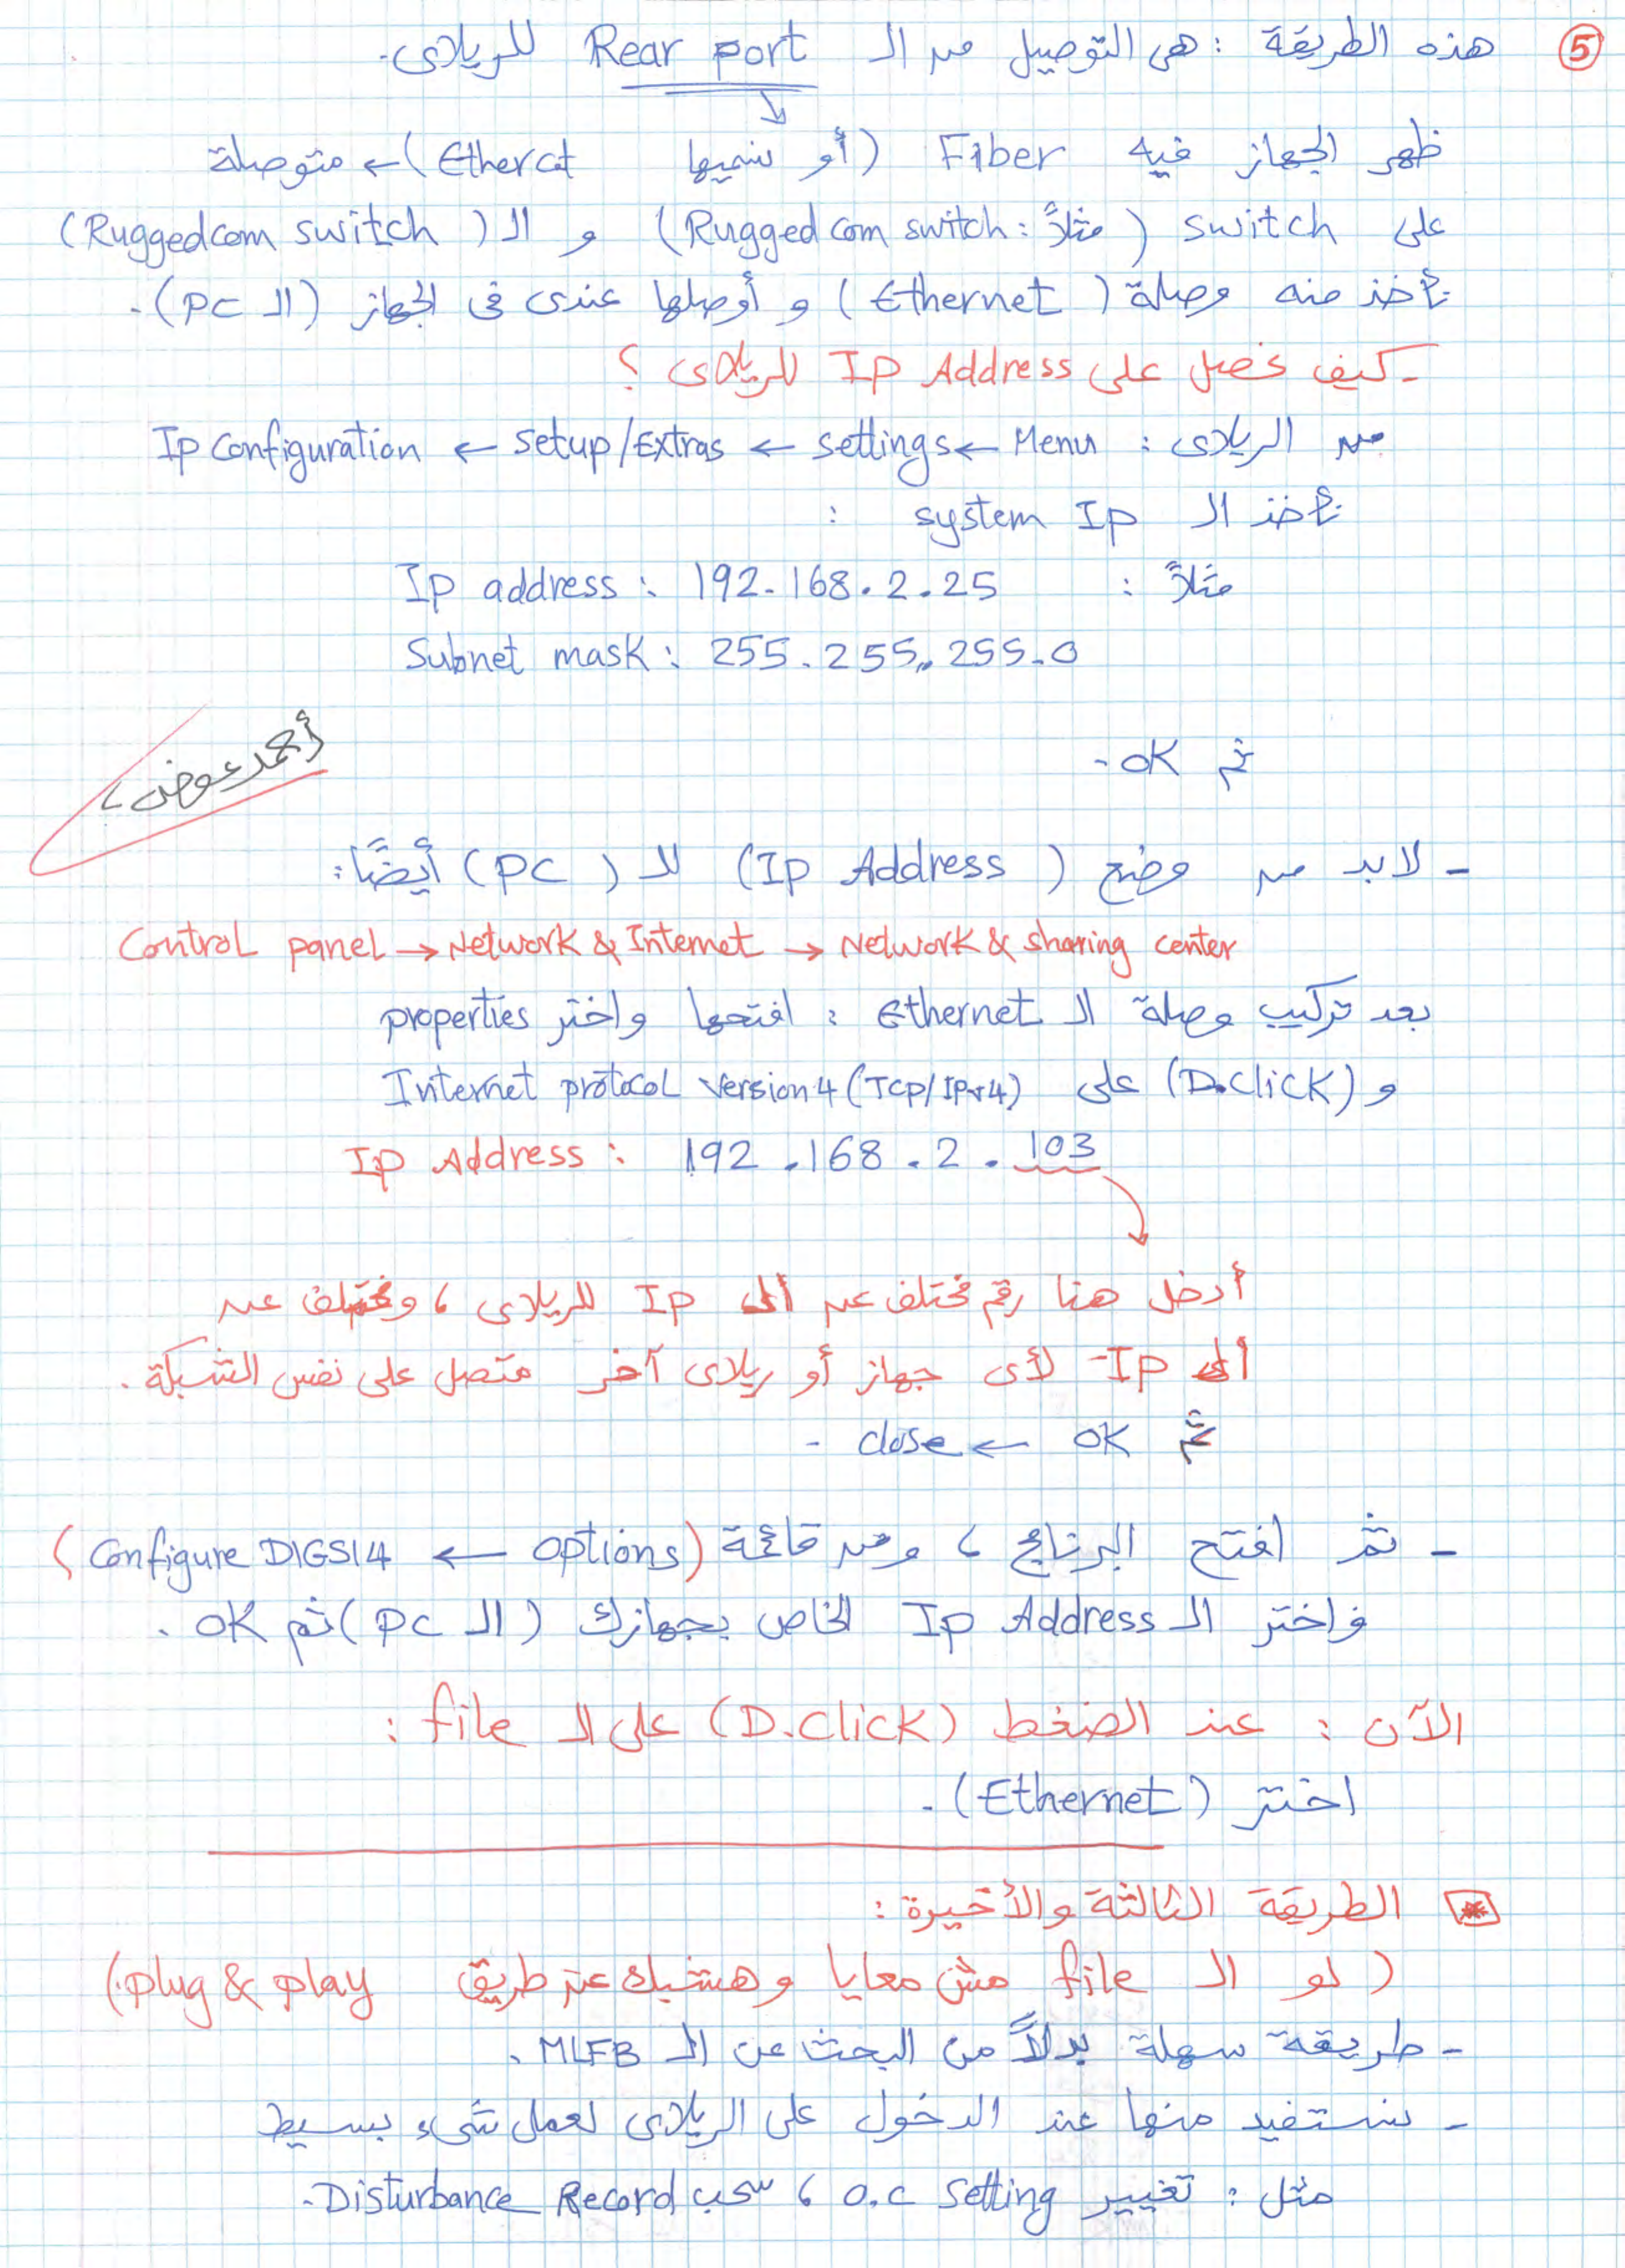 ⑤ هذه الطريقة : هى التوصيل من الـ Rear port للريلاى.
ظهر الجهاز فيه Fiber (أو نسميها Ethercat) ← متوصلة
على switch (مثلاً : Ruggedcom switch) و الـ (Ruggedcom switch)
نأخذ منه وصلة (Ethernet) و أوصلها عندى فى الجهاز (الـ PC).
- كيف نحصل على IP Address للريلاى ؟
من الريلاى : Menu ← settings ← setup/Extras ← Ip Configuration
نأخذ الـ system Ip :
مثلاً : Ip address : 192.168.2.25
Subnet mask : 255.255.255.0
ثم OK.
أحمد عوض
- لابد من وضع (Ip Address) للـ (PC) أيضًا :
Control panel → Network & Internet → Network & sharing center
بعد تركيب وصلة الـ Ethernet : افتحها واختر properties
و (D.click) على Internet protocol version 4 (TCP/IPv4)
Ip Address : 192.168.2.103
أدخل هنا رقم مختلف عن الـ Ip للريلاى ، ومختلف عن
الـ Ip لأى جهاز أو ريلاى آخر متصل على نفس الشبكة.
ثم OK ← close.
- ثم افتح البرنامج ، ومن قائمة (options ← Configure DIGSI4)
واختر الـ Ip Address الخاص بجهازك (الـ PC) ثم OK.
الآن : عند الضغط (D.click) على الـ file :
اختر (Ethernet).
* الطريقة الثالثة والأخيرة :
(لو الـ file مش معايا وهشبك عن طريق plug & play.)
- طريقة سهلة بدلاً من البحث عن الـ MLFB.
- نستفيد منها عند الدخول على الريلاى لعمل شىء بسيط
مثل : تغيير O.C setting ، سحب Disturbance Record.